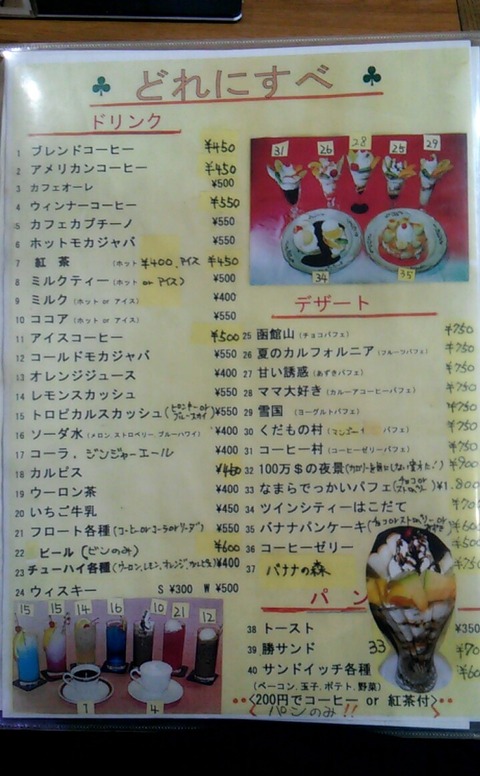 どれにすべ
ドリンク
1 ブレンドコーヒー ¥450
2 アメリカンコーヒー ¥450
3 カフェオーレ ¥500
4 ウィンナーコーヒー ¥550
5 カフェカプチーノ ¥550
6 ホットモカジャバ ¥550
7 紅茶 (ホット ¥400. アイス ¥450
8 ミルクティー (ホット or アイス) ¥500
9 ミルク (ホット or アイス) ¥400
10 ココア (ホット or アイス) ¥550
11 アイスコーヒー ¥500
12 コールドモカジャバ ¥550
13 オレンジジュース ¥400
14 レモンスカッシュ ¥550
15 トロピカルスカッシュ ¥550
16 ソーダ水 (メロン, ストロベリー, ブルーハワイ) ¥400
17 コーラ. ジンジャーエール ¥400
18 カルピス
19 ウーロン茶 ¥400
20 いちご牛乳 ¥450
21 フロート各種 (コーヒー or コーラ or ソーダ) ¥550
22 ビール (ビンのみ) ¥600
23 チューハイ各種 (ウーロン, レモン, オレンジ, カルピス) ¥400
24 ウィスキー S ¥300 W ¥500
15 15 14 16 10 21 12
1 4
31 26 28 25 29
34 35
デザート
25 函館山 (チョコパフェ) ¥750
26 夏のカルフォルニア (フルーツパフェ) ¥750
27 甘い誘惑 (あずきパフェ) ¥750
28 ママ大好き (カルーアコーヒーパフェ) ¥750
29 雪国 (ヨーグルトパフェ) ¥750
30 くだもの村 (マンゴー パフェ) ¥750
31 コーヒー村 (コーヒーゼリーパフェ) ¥750
32 100万$の夜景 ¥900
33 なまらでっかいパフェ (チョコ or ストロベリー) ¥1.800
34 ツインシティーはこだて ¥700
35 バナナパンケーキ (チョコ or ストロベリー or あずき) ¥600
36 コーヒーゼリー ¥500
37 バナナの森 ¥750
パン
38 トースト ¥350
39 勝サンド
33
40 サンドイッチ各種
(ベーコン, 玉子, ポテト, 野菜)
<200円でコーヒー or 紅茶付>
パンのみ!!